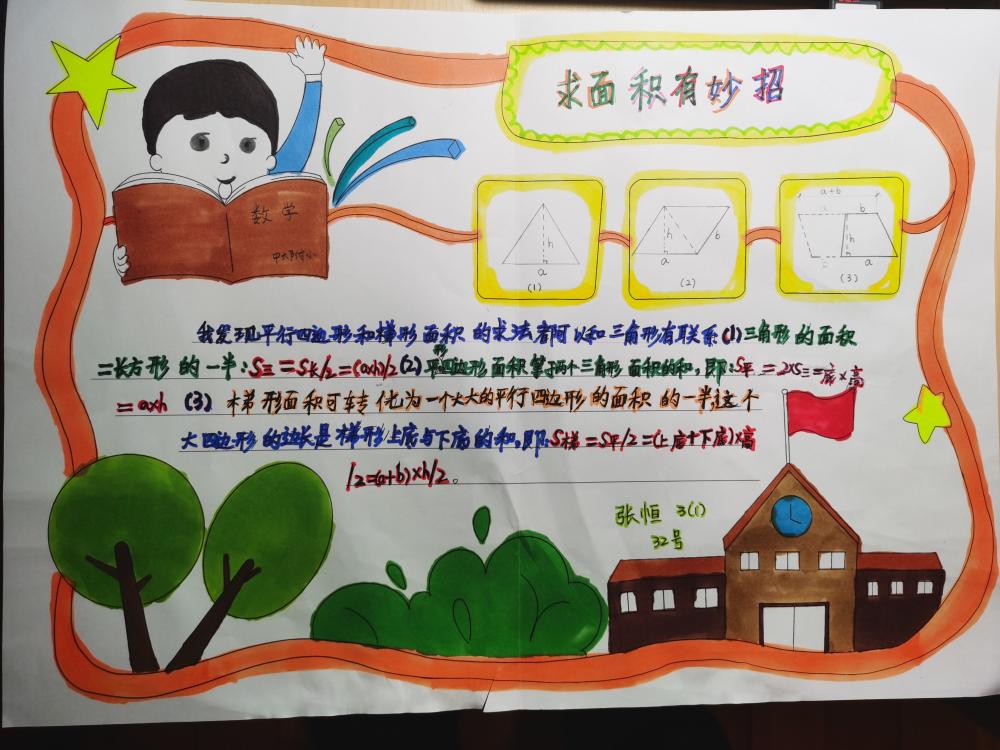 求面积有妙招
数学
中大附小
h
a
(1)
h
b
a
(2)
a+b
a b
h
a
(3)
我发现平行四边形和梯形面积的求法都可以和三角形有联系(1)三角形的面积
=长方形的一半:S三=S长/2=(axh)/2(2)平四边形面积等于两个三角形面积的和,即:S平=2×S三=底×高
=axh (3) 梯形面积可转化为一个大大的平行四边形的面积的一半,这个
大四边形的边长是梯形上底与下底的和,即:S梯=S平/2=(上底+下底)×高
/2=(a+b)×h/2。
张恒 3(1)
32号